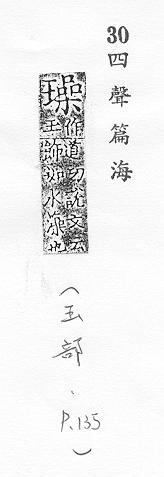 30四聲篇海
璪
作道切說文云
玉飾如水藻也
(玉部、P.135)